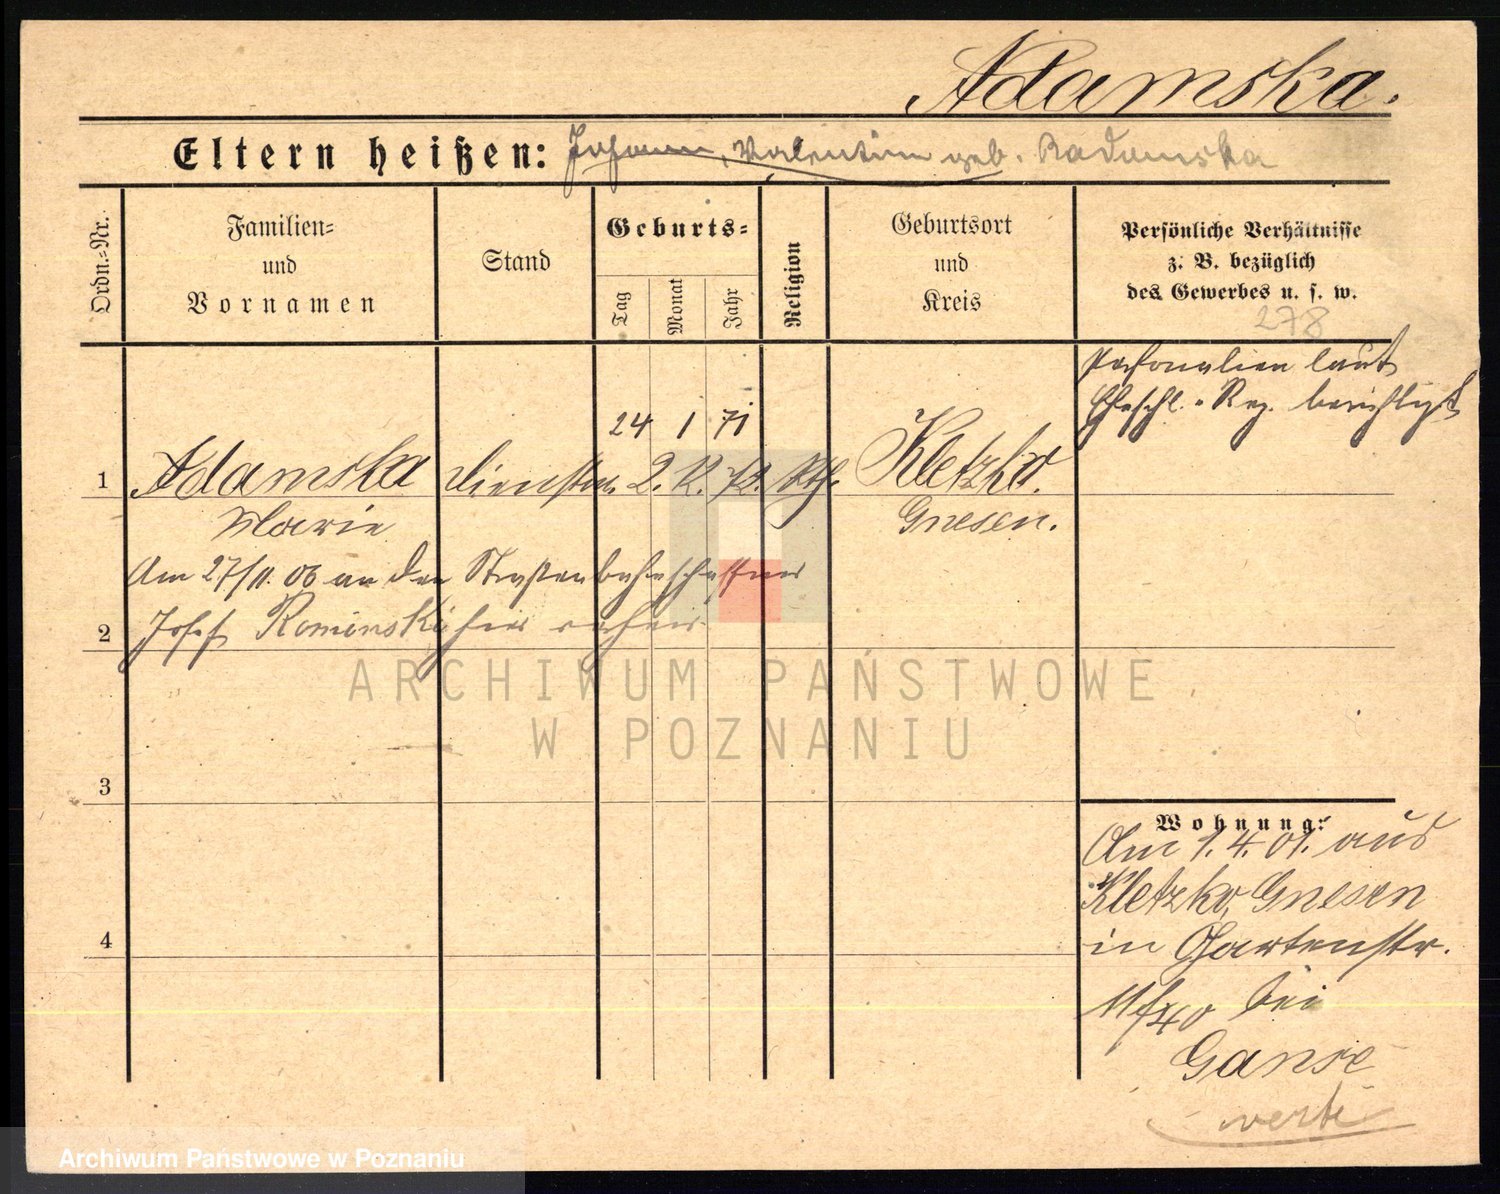 Adamska.
Eltern heißen: Johann, Valentin geb. Radomska
Ordn.-Nr.
Familien-
und
Vornamen
Stand
Geburts-
Tag
Monat
Jahr
Religion
Geburtsort
und
Kreis
Persönliche Verhältnisse
z. B. bezüglich
des Gewerbes u. s. w.
278
Personalien laut
Eheschl.-Reg. berichtigt
24 1 71
1 Adamska Dienstm. 2. 12. 72. Kth. Kletzko.
Marie Gnesen.
Am 27/11. 06 an den Straßenbahnschaffner
2 Josef Rominski hier verheir.
3
4
Wohnung:
Am 1. 4. 01. aus
Kletzko, Gnesen
in Gartenstr.
bei
Ganse
verte
ARCHIWUM PAŃSTWOWE
W POZNANIU
Archiwum Państwowe w Poznaniu